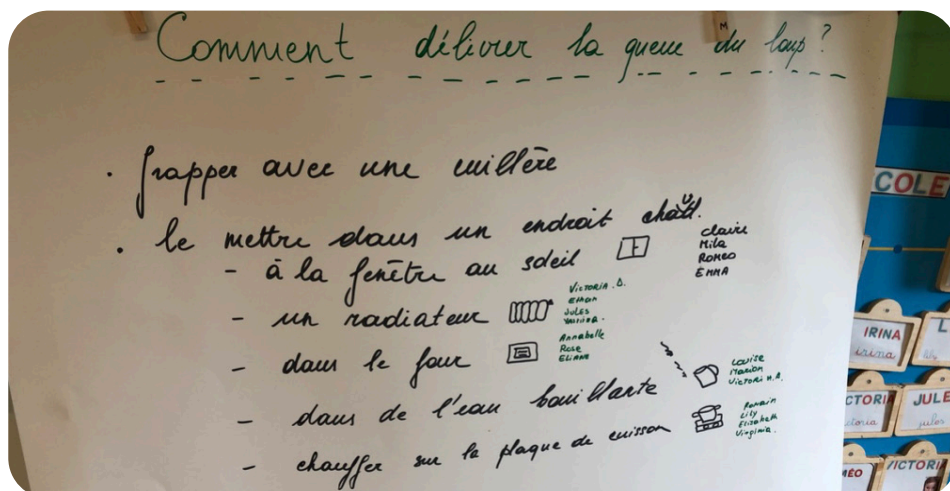 M
Comment délivrer la queue du loup?
. frapper avec une cuillère
. le mettre dans un endroit chaud.
- à la fenêtre au soleil
Claire
Mila
ROMEO
EMMA
- un radiateur
VICTORIA. D.
Ethan
Jules
- dans le four
Annabelle
Rose
ELIANE
- dans de l'eau bouillante
Louise
Marion
VICTORI H.A.
- chauffer sur la plaque de cuisson
Romain
Lily
Elizabeth
Virginie.
COLE
IRINA
irina
L
CTORI
ictoria
JULE
jules
MÉO
VICTORI